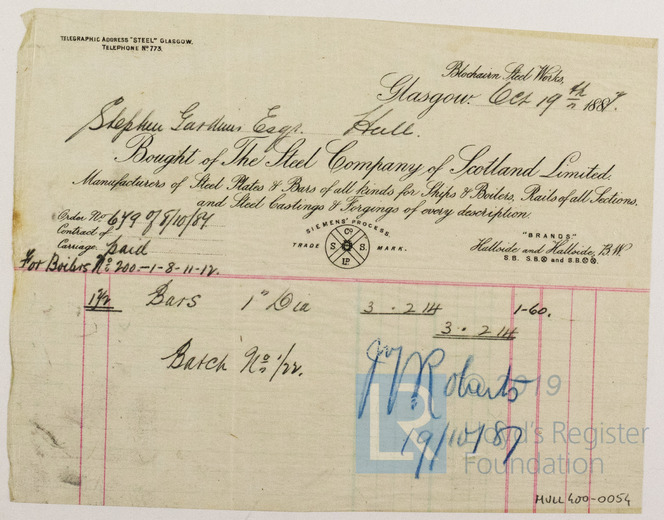 TELEGRAPHIC ADDRESS "STEEL" GLASGOW.
TELEPHONE No 773.
Blochairn Steel Works,
Glasgow. Oct 19th 1887.
Stephen Gardiner Esqr. Hull.
Bought of The Steel Company of Scotland Limited.
Manufacturers of Steel Plates & Bars of all kinds for Ships & Boilers, Rails of all Sections,
and Steel Castings & Forgings of every description
Order No 679 of 8/10/87.
Contract of
Carriage paid
SIEMENS' PROCESS.
TRADE MARK.
Co
S. S.
LD
"BRANDS."
Hallside and Hallside, B.W.
S.B. S.B. and S.B.
For Boilers No 200-1-8-11-12.
142 Bars 1" Dia 3 . 2 14 1-60.
3 . 2 14
Batch No 1/22.
Roberts
19/10/87
© 2019
LR
Lloyd's Register
Foundation
HULL400-0054